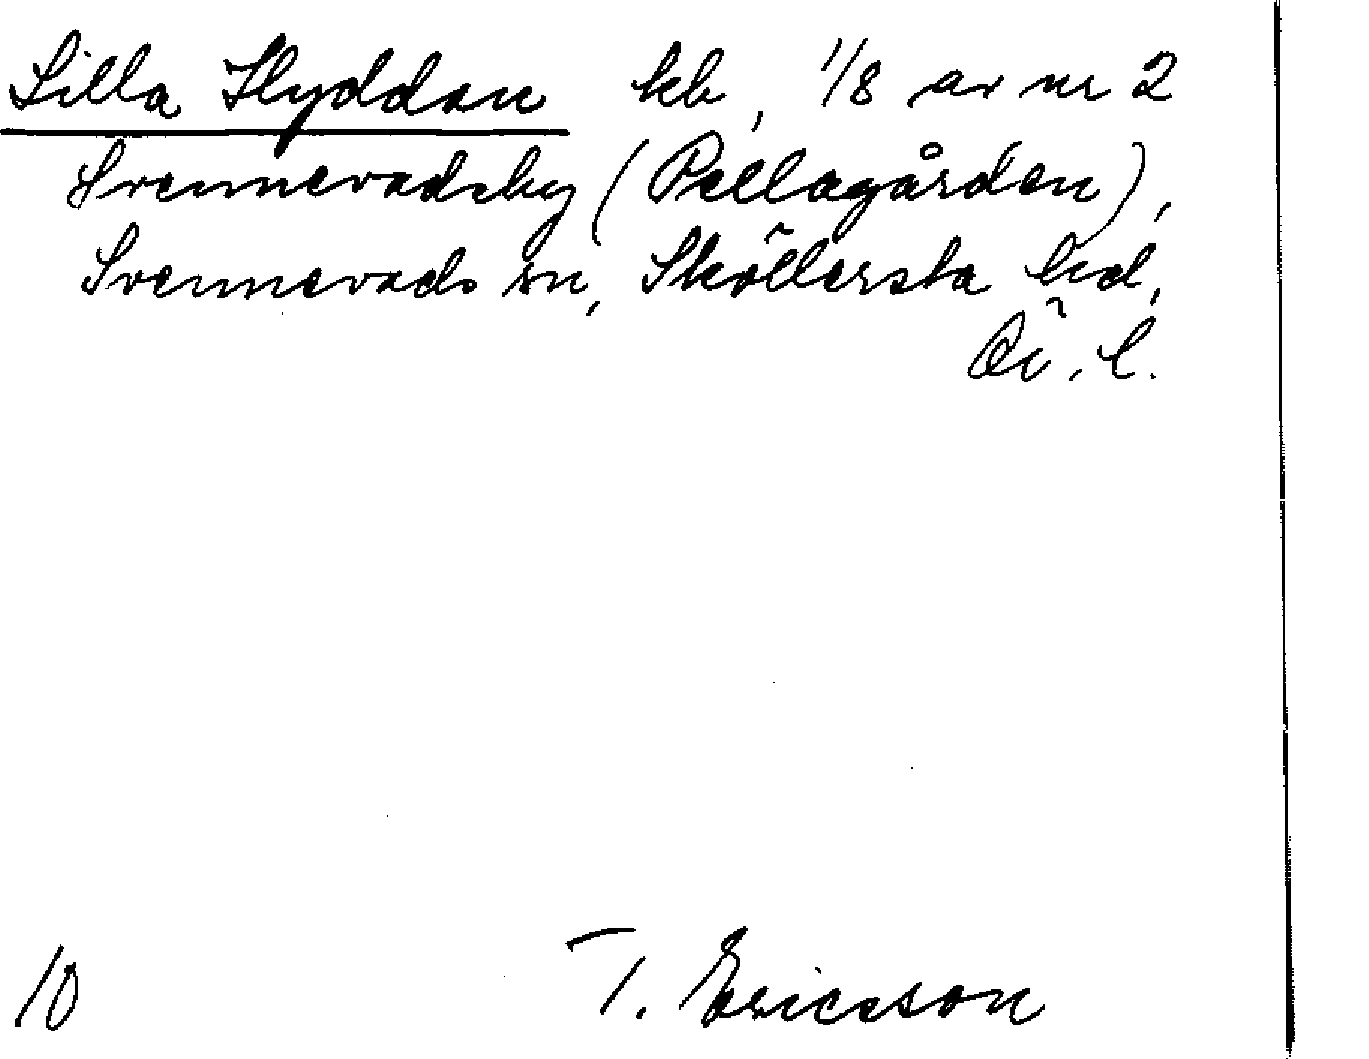 Lilla Hyddan kb, 1/8 av nr 2
Svennevadsby (Pellagården),
Svennevads sn, Sköllersta hd,
Ör. l.
10 T. Ericsson